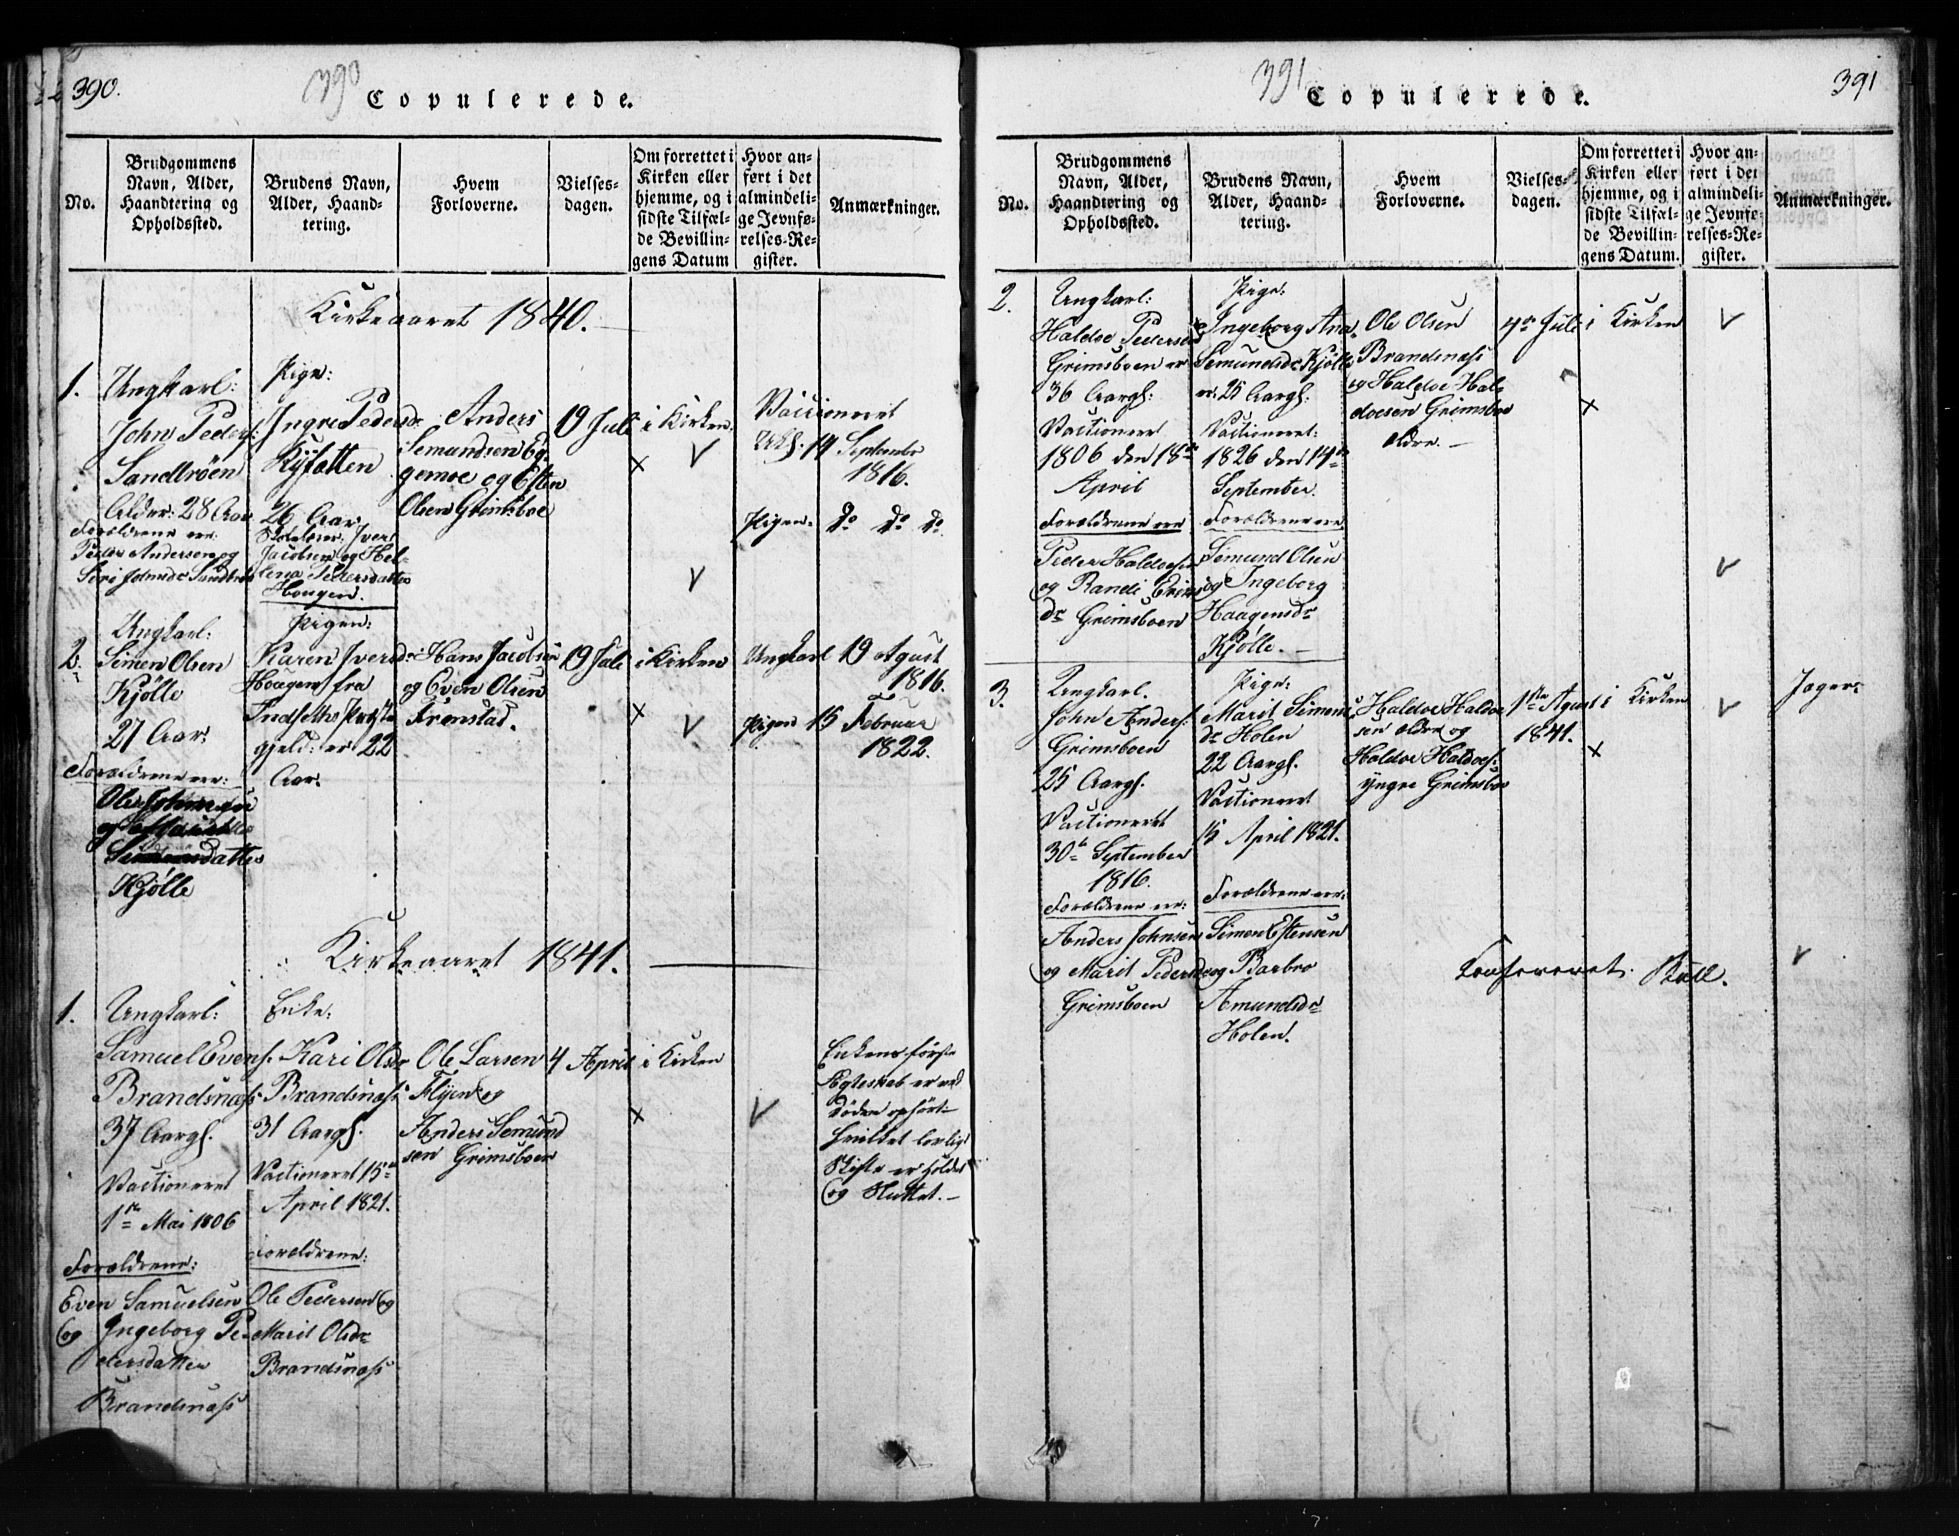 390.
390
Copulerede.
No.
Brudgommens
Navn, Alder,
Haandtering og
Opholdssted.
Brudens Navn,
Alder, Haand-
tering.
Hvem
Forloverne.
Vielses-
dagen.
Om forrettet i
Kirken eller
hjemme, og i
sidste Tilfæl-
de Bevillin-
gens Datum
Hvor an-
ført i det
almindeli-
ge Jevnfø-
relses-Re-
gister.
Anmærkninger.
Kirkeaaret 1840.
1.
Ungkarl:
John Peders:
Sandbröen
Alder: 28 Aar
Forældrene ere
Peder Andersen og
Siri Johnsdr Sandbröe
Pige:
Ingri Pedersdr
26 Aar
Iver
Jacobsen og Hel-
lena Pedersdatter
Hougen.
Anders
Semundsen Eg-
gemoe og Esten
Olsen Grimsboe
19 Juli
i Kirken.
Vaccineret
Uk. 19 September
1816.
Pigen: do do do
2.
Ungkarl:
Simen Olsen
Kjølle
27 Aar:
Forældrene ere:
Simensdatter
Kjølle
Pigen:
Karen Iversdr
Hougen fra
Indseths Præste
gjeld: er 22
Aar.
Hans Jacobsen
og Even Olsen
Frenstad.
19 Juli
i Kirken
Ungkarl 19 Agust
1816.
Pigen 15 Februar
1822.
Kirkeaaret 1841.
1.
Ungkarl:
Samuel Evens.
Brandsnæss
37 Aargl.
Vactioneret
1ste Mai 1806
Forældrene:
Even Samuelsen
og Ingeborg Pe-
dersdatter
Brandsnæss
Enke:
Kari Olsdr
Brandsnæss
31 Aargl.
Vactioneret 15de
April 1821.
Forældrene:
Ole Pedersen og
Marit Olsdr
Brandsnæss
Ole Larsen
Flyen og
Anders Semund
sen Grimsboen
4 April
i Kirken
Enkens første
Ægteskab er ved
Døden ophört
hvilket lovligt
Skifte er holdet
og Sluttet.
391
391
Copulerede.
No.
Brudgommens
Navn, Alder,
Haandtering og
Opholdssted.
Brudens Navn,
Alder, Haand-
tering.
Hvem
Forloverne.
Vielses-
dagen.
Om forrettet i
Kirken eller
hjemme, og i
sidste Tilfæl-
de Bevillin-
gens Datum.
Hvor an-
ført i det
almindeli-
ge Jevnfø-
relses-Re-
gister.
Anmærkninger.
2.
Ungkarl:
Haldoe Pedersen
Grimsboen er
36 Aargl:
Vactioneret
1806 den 18de
April
Forældrene ere
Peder Haldoesen
og Randi Evens
dr Grimsboen
Pige:
Ingeborg Ana
Semundsdr Kjølle
er: 25 Aargl.
Vactioneret:
1826 den 14de
September.
Forældrene ere
Semund Olsen
og Ingeborg
Haagensdr
Kjølle.
Ole Olsen
Brandsnæss
og Haldoe Hal-
doesen Grimsboe
ældre.
4de Juli
i Kirken
3.
Ungkarl.
John Anders.
Grimsboen
25 Aargl.
Vactioneret
30te September
1816.
Forældrene ere:
Anders Johnsen
og Marit Pedersdr
Grimsboen
Pige:
Marit Simens
dr Holen
22 Aargl.
Vactioneret
15 April 1821.
Forældrene ere:
Simen Estensen
og Barbro
Amundsdr
Holen.
Haldoe Haldoe
sen ældre og
Haldoe Haldoes.
yngre Grimsboe
1ste Agust
1841.
i Kirken
Jæger
Konfereret. Bull.